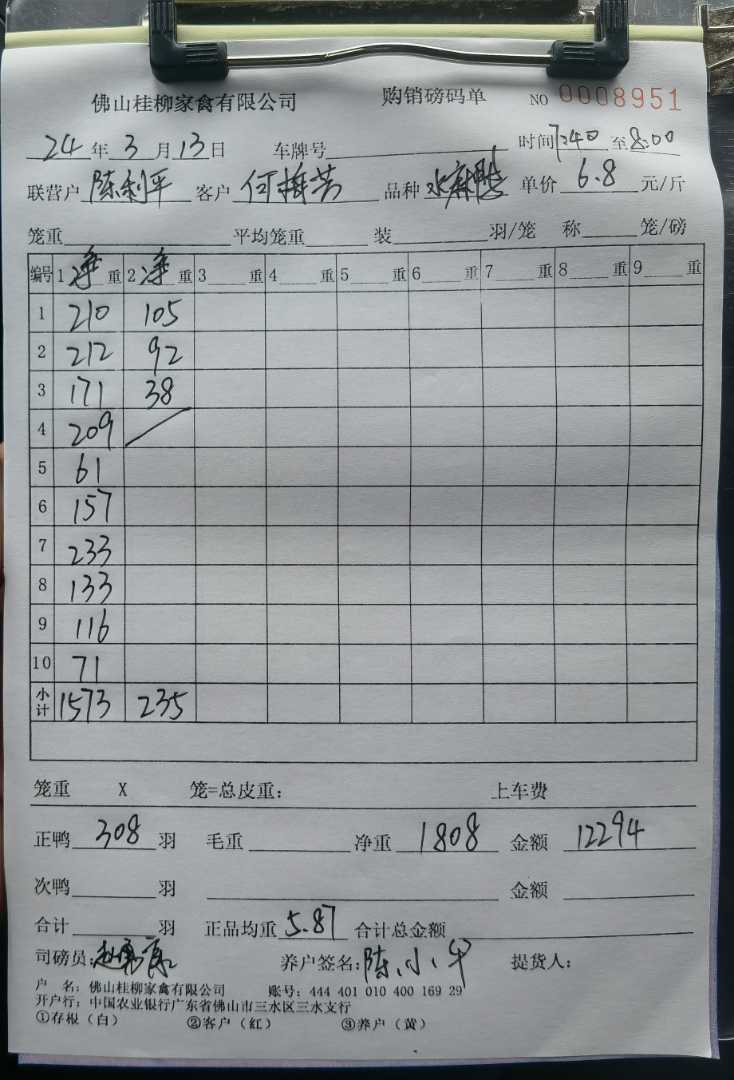 佛山桂柳家禽有限公司 购销磅码单 NO 0008951
24年3月13日 车牌号 时间7:40至8:00
联营户 陈利平 客户 何梅芳 品种 单价 6.8 元/斤
笼重 平均笼重 装 羽/笼 称 笼/磅
编号 1净重 2净重 3 重 4 重 5 重 6 重 7 重 8 重 9 重
1 210 105
2 212 92
3 171 38
4 209
5 61
6 157
7 233
8 133
9 116
10 71
小计 1573 235
笼重 X 笼=总皮重: 上车费
正鸭 308 羽 毛重 净重 1808 金额 12294
次鸭 羽 金额
合计 羽 正品均重 5.87 合计总金额
司磅员: 养户签名: 陈小华 提货人:
户 名: 佛山桂柳家禽有限公司 账号: 444 401 010 400 169 29
开户行: 中国农业银行广东省佛山市三水区三水支行
①存根(白) ②客户(红) ③养户(黄)